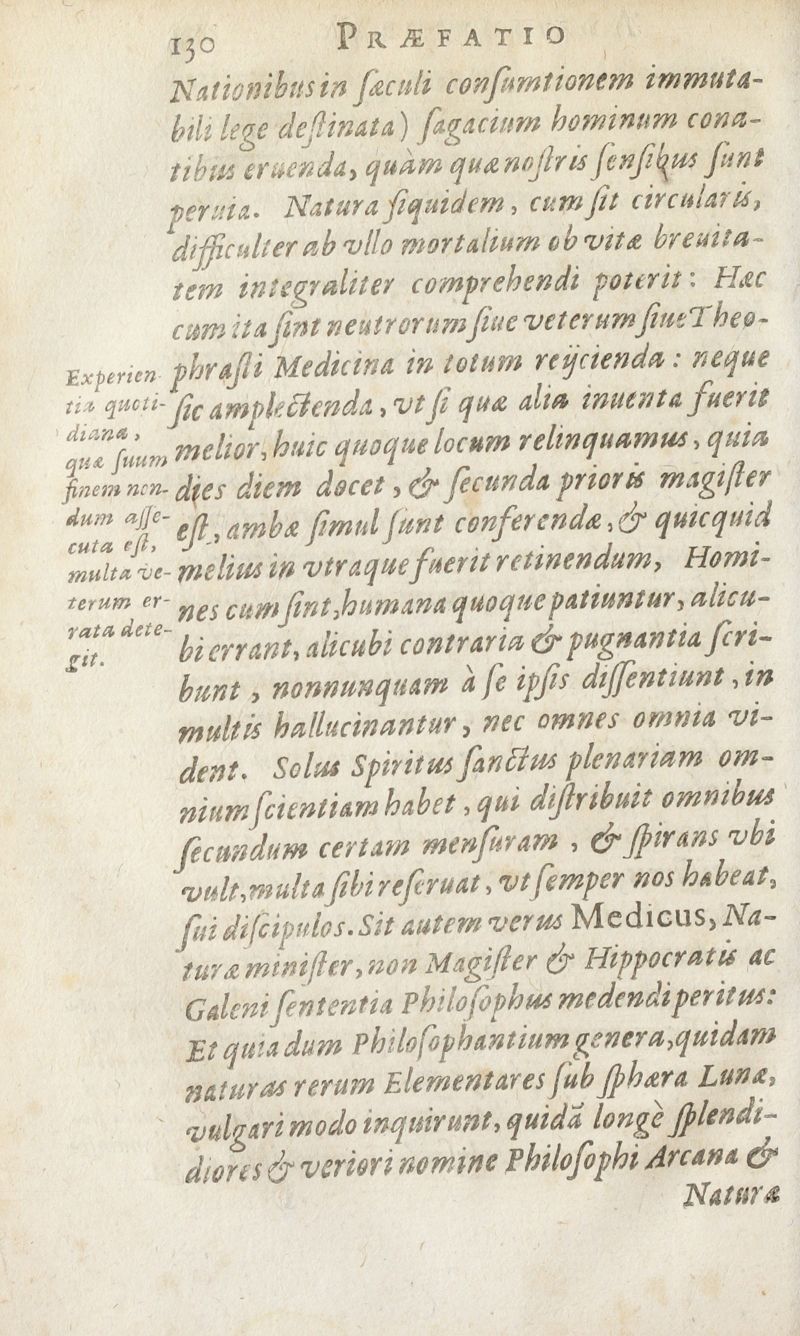 130 PRÆFATIO
Nationibus in ſæculi conſumtionem immuta-
bili lege deſtinata) ſagacium hominum cona-
tibus eruenda, quàm quæ noſtris ſenſibus ſunt
peruia. Natura ſiquidem, cum ſit circularis,
difficulter ab vllo mortalium ob vitæ breuita-
tem integraliter comprehendi poterit: Hæc
cum ita ſint neutrorum ſiue veterum ſiue Theo-
phraſti Medicina in totum reijcienda: neque
ſic amplectenda, vt ſi quæ alia inuenta fuerit
melior, huic quoque locum relinquamus, quia
dies diem docet, & ſecunda prioris magiſter
eſt, ambæ ſimul ſunt conferendæ, & quicquid
melius in vtraque fuerit retinendum, Homi-
nes cum ſint, humana quoque patiuntur, alicu-
bi errant, alicubi contraria & pugnantia ſcri-
bunt, nonnunquam à ſe ipſis diſſentiunt, in
multis hallucinantur, nec omnes omnia vi-
dent. Solus Spiritus ſanctus plenariam om-
nium ſcientiam habet, qui diſtribuit omnibus
ſecundum certam menſuram, & ſpirans vbi
vult, multa ſibi reſeruat, vt ſemper nos habeat,
ſui diſcipulos. Sit autem verus Medicus, Na-
turæ miniſter, non Magiſter & Hippocratis ac
Galeni ſententia Philoſophus medendi peritus:
Et quia dum Philoſophantium genera, quidam
naturas rerum Elementares ſub ſphæra Lunæ,
vulgari modo inquirunt, quidã longè ſplendi-
diores & veriori nomine Philoſophi Arcana &
Naturæ
Experien-
tia quoti-
diana,
quæ ſuum
finem non-
dum aſſe-
cuta eſt,
multa ve-
terum er-
rata dete-
git.